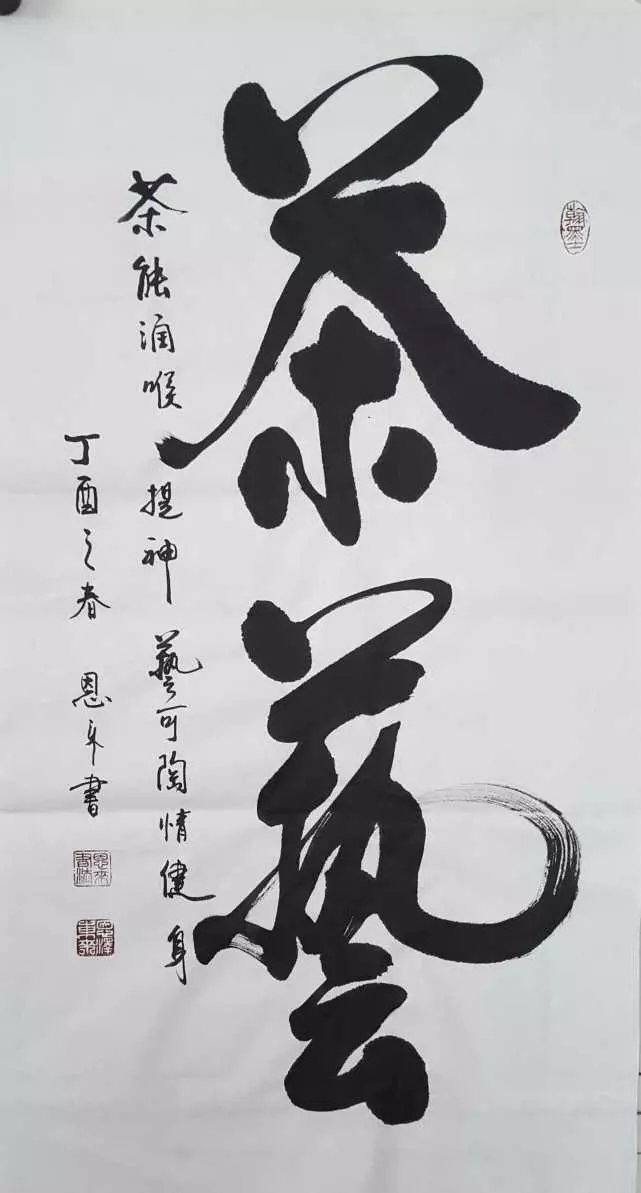 茶藝
茶能润喉提神藝可陶情健身
丁酉之春 恩来書
翰墨